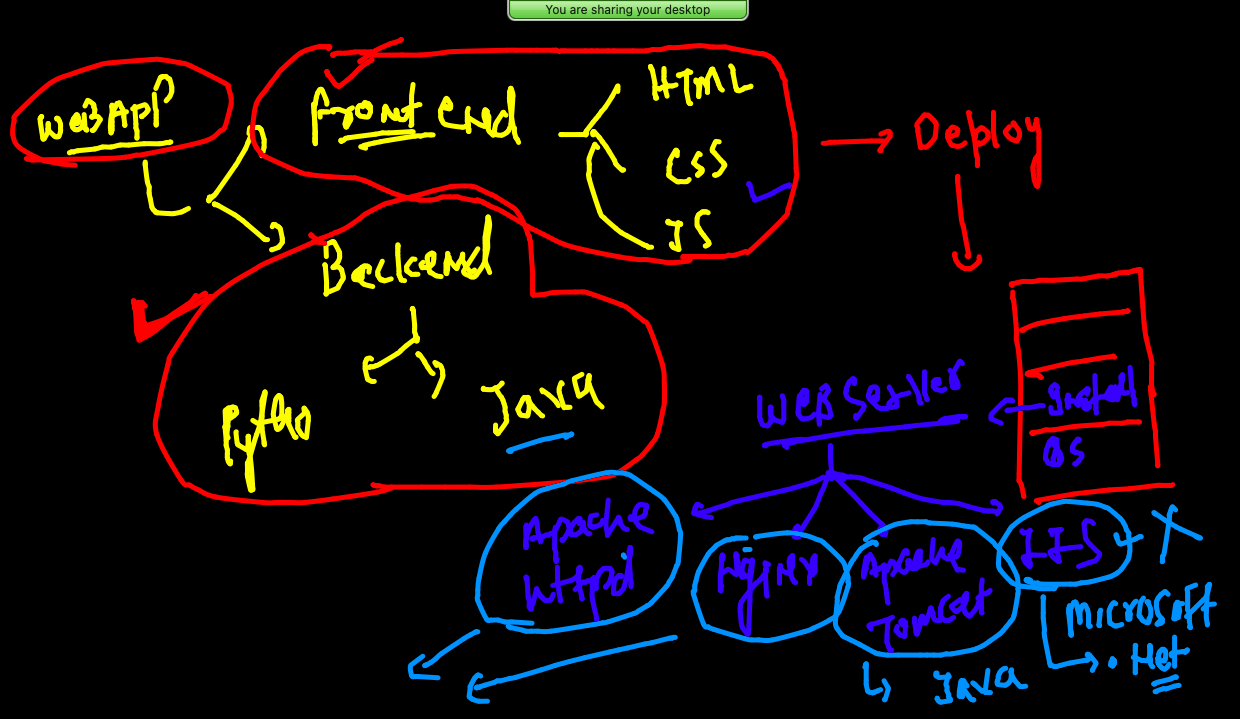 You are sharing your desktop
WEBAPP
Front End
HTML
CSS
JS
Deploy
Backend
Pytho
Java
Web Server
Install
OS
Apache
httpd
Nginx
Apache
Tomcat
IIS
X
Microsoft
.Net
Java